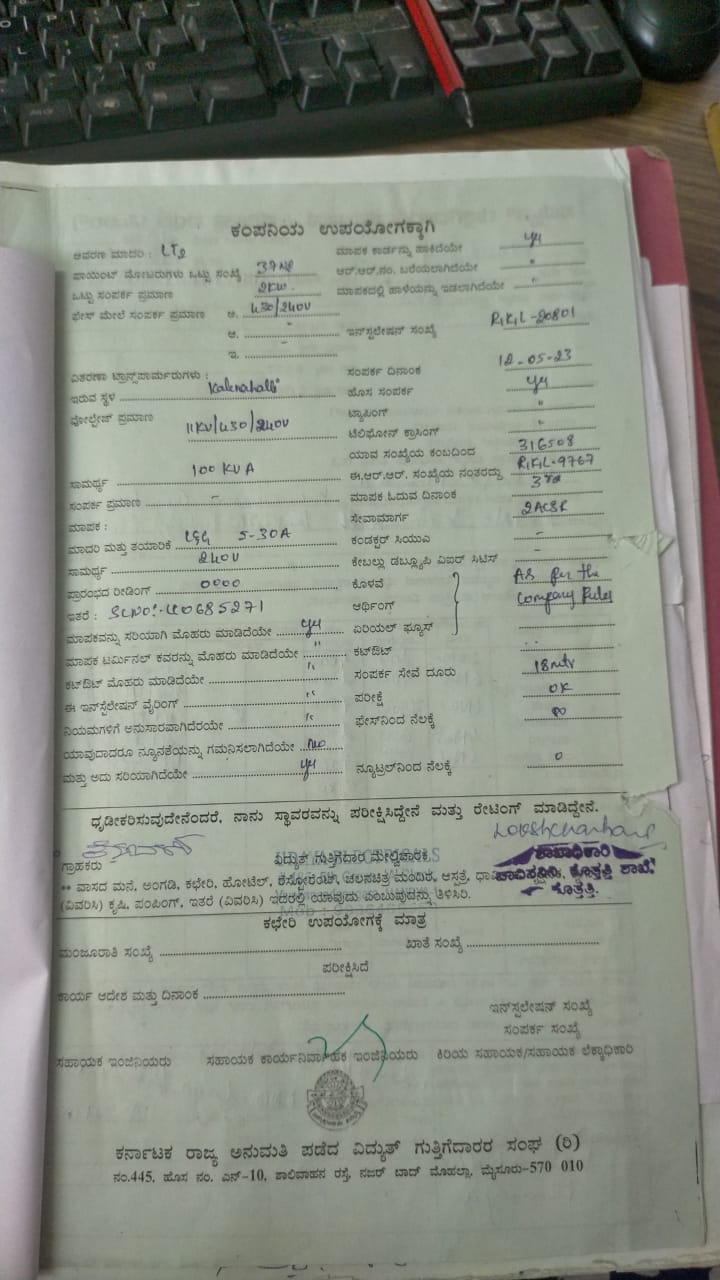 ಕಂಪನಿಯ ಉಪಯೋಗಕ್ಕಾಗಿ
ಆವರಣ ಮಾದರಿ : LT2 ಮಾಪಕ ಕಾರ್ಡನ್ನು ಹಾಕಿದೆಯೇ
ಪಾಯಿಂಟ್ ಮೋಟರುಗಳು ಒಟ್ಟು ಸಂಖ್ಯೆ ಆರ್.ಆರ್.ನಂ. ಬರೆಯಲಾಗಿದೆಯೇ "
ಒಟ್ಟು ಸಂಪರ್ಕ ಪ್ರಮಾಣ 2KW. ಮಾಪಕದಲ್ಲಿ ಹಾಳೆಯನ್ನು ಇಡಲಾಗಿದೆಯೇ "
ಫೇಸ್ ಮೇಲೆ ಸಂಪರ್ಕ ಪ್ರಮಾಣ ಅ. 430/240V
ಆ. " ಇನ್‌ಸ್ಟಲೇಷನ್ ಸಂಖ್ಯೆ RKL-20801
ಇ.
ವಿತರಣಾ ಟ್ರಾನ್ಸ್‌ಪಾರ್ಮರುಗಳು : ಸಂಪರ್ಕ ದಿನಾಂಕ 12-05-23
ಇರುವ ಸ್ಥಳ ಹೊಸ ಸಂಪರ್ಕ
ವೋಲ್ಟೇಜ್ ಪ್ರಮಾಣ 11KV/430/240V ಟ್ಯಾಪಿಂಗ್ "
ಟೆಲಿಫೋನ್ ಕ್ರಾಸಿಂಗ್ "
ಯಾವ ಸಂಖ್ಯೆಯ ಕಂಬದಿಂದ 316508
ಸಾಮರ್ಥ್ಯ 100 KVA ಈ.ಆರ್.ಆರ್. ಸಂಖ್ಯೆಯ ನಂತರದ್ದು RKL-9767
ಸಂಪರ್ಕ ಪ್ರಮಾಣ - ಮಾಪಕ ಓದುವ ದಿನಾಂಕ
ಮಾಪಕ : ಸೇವಾಮಾರ್ಗ 2ACSR
ಮಾದರಿ ಮತ್ತು ತಯಾರಿಕೆ L&G 5-30A ಕಂಡಕ್ಟರ್ ಸಿಯುವಿ -
ಸಾಮರ್ಥ್ಯ 240V ಕೇಬಲ್ಲು ಡಬ್ಲ್ಯೂಪಿ ವಿಐರ್ ಸಿಟಿಸ್ -
ಪ್ರಾರಂಭದ ರೀಡಿಂಗ್ 0000 ಕೊಳವೆ As per the
ಇತರೆ : SLNO:-40685271 ಆರ್ಥಿಂಗ್ Company Rules
ಮಾಪಕವನ್ನು ಸರಿಯಾಗಿ ಮೊಹರು ಮಾಡಿದೆಯೇ ಏರಿಯಲ್ ಫ್ಯೂಸ್
ಮಾಪಕ ಟರ್ಮಿನಲ್ ಕವರನ್ನು ಮೊಹರು ಮಾಡಿದೆಯೇ " ಕಟ್‌ಔಟ್
ಕಟ್‌ಔಟ್ ಮೊಹರು ಮಾಡಿದೆಯೇ " ಸಂಪರ್ಕ ಸೇವೆ ದೂರು 18mtr
ಈ ಇನ್‌ಸ್ಟಲೇಷನ್ ವೈರಿಂಗ್ " ಪರೀಕ್ಷೆ OK
ನಿಯಮಗಳಿಗೆ ಅನುಸಾರವಾಗಿದೆಯೇ " ಫೇಸ್‌ನಿಂದ ನೆಲಕ್ಕೆ
ಯಾವುದಾದರೂ ನ್ಯೂನತೆಯನ್ನು ಗಮನಿಸಲಾಗಿದೆಯೇ No
ಮತ್ತು ಅದು ಸರಿಯಾಗಿದೆಯೇ ನ್ಯೂಟ್ರಲ್‌ನಿಂದ ನೆಲಕ್ಕೆ 0
ಧೃಡೀಕರಿಸುವುದೇನೆಂದರೆ, ನಾನು ಸ್ಥಾವರವನ್ನು ಪರೀಕ್ಷಿಸಿದ್ದೇನೆ ಮತ್ತು ರೇಟಿಂಗ್ ಮಾಡಿದ್ದೇನೆ.
ಗ್ರಾಹಕರು ವಿದ್ಯುತ್ ಗುತ್ತಿಗೆದಾರ ಮೇಲ್ವಿಚಾರಕ ಶಾಖಾಧಿಕಾರಿ
** ವಾಸದ ಮನೆ, ಅಂಗಡಿ, ಕಛೇರಿ, ಹೋಟೆಲ್, ರೆಸ್ಟೋರೆಂಟ್, ಚಲನಚಿತ್ರ ಮಂದಿರ, ಆಸ್ಪತ್ರೆ, ಶಾಖೆ,
(ವಿವರಿಸಿ) ಕೃಷಿ, ಪಂಪಿಂಗ್, ಇತರೆ (ವಿವರಿಸಿ) ಇದರಲ್ಲಿ ಯಾವುದು ಎಂಬುವುದನ್ನು ತಿಳಿಸಿರಿ. ಕೊತ್ತತ್ತಿ.
ಕಛೇರಿ ಉಪಯೋಗಕ್ಕೆ ಮಾತ್ರ
ಮಂಜೂರಾತಿ ಸಂಖ್ಯೆ ಖಾತೆ ಸಂಖ್ಯೆ
ಪರೀಕ್ಷಿಸಿದೆ
ಕಾರ್ಯ ಆದೇಶ ಮತ್ತು ದಿನಾಂಕ
ಇನ್‌ಸ್ಟಲೇಷನ್ ಸಂಖ್ಯೆ
ಸಂಪರ್ಕ ಸಂಖ್ಯೆ
ಸಹಾಯಕ ಇಂಜಿನಿಯರು ಸಹಾಯಕ ಕಾರ್ಯನಿರ್ವಾಹಕ ಇಂಜಿನಿಯರು ಕಿರಿಯ ಸಹಾಯಕ/ಸಹಾಯಕ ಲೆಕ್ಕಾಧಿಕಾರಿ
ಕರ್ನಾಟಕ ರಾಜ್ಯ ಅನುಮತಿ ಪಡೆದ ವಿದ್ಯುತ್ ಗುತ್ತಿಗೆದಾರರ ಸಂಘ (ರಿ)
ನಂ.445, ಹೊಸ ನಂ. ಎನ್-10, ಶಾಲಿವಾಹನ ರಸ್ತೆ, ನಜರ್ ಬಾದ್ ಮೊಹಲ್ಲಾ, ಮೈಸೂರು-570 010